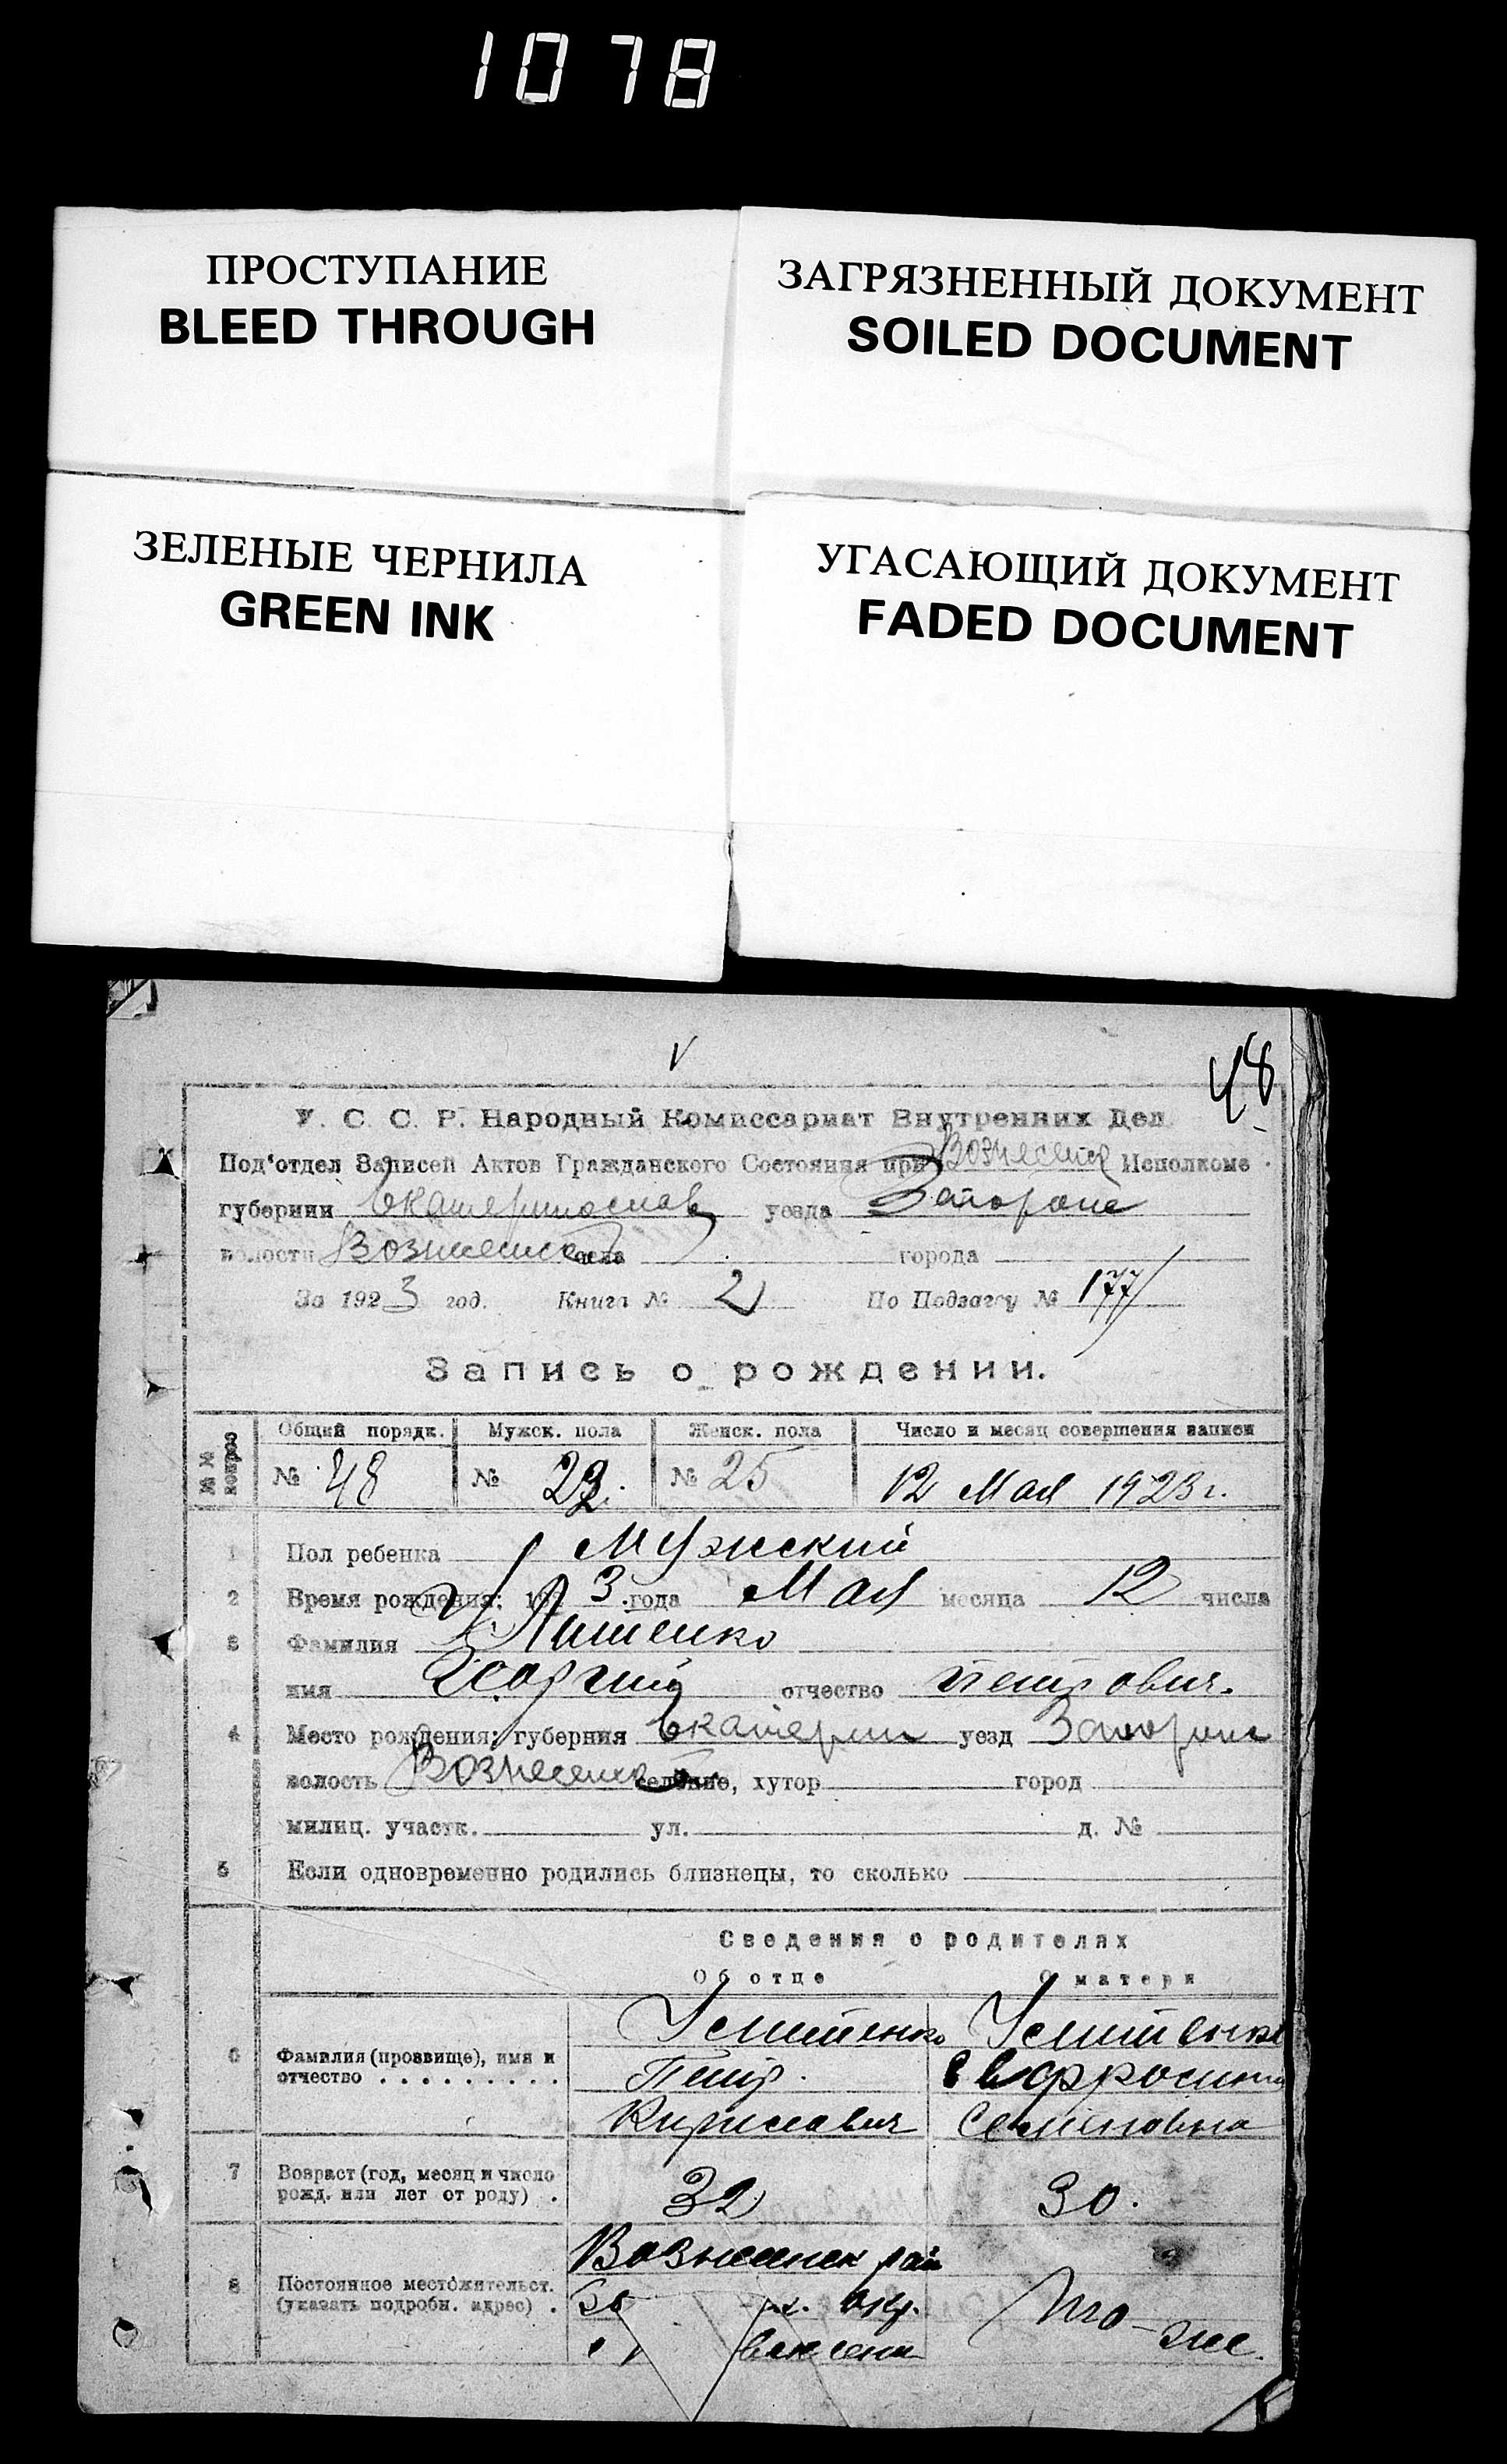 1078
ПРОСТУПАНИЕ
BLEED THROUGH
ЗАГРЯЗНЕННЫЙ ДОКУМЕНТ
SOILED DOCUMENT
ЗЕЛЕНЫЕ ЧЕРНИЛА
GREEN INK
УГАСАЮЩИЙ ДОКУМЕНТ
FADED DOCUMENT
V
48
У. С. С. Р. Народный Комиссариат Внутренних Дел
Под'отдел Записей Актов Гражданского Состояния при Вознесенск Исполкоме
губернии Екатеринослав уезда Запорож
волости Вознесенск села города
За 1923 год. Книга № 2 По Подзагсу № 177
Запись о рождении.
№№ вопрос Общий порядк. Мужск. пола Женск. пола Число и месяц совершения записи
№ 48 № 23. № 25 12 Мая 1923 г.
1 Пол ребенка Мужский
2 Время рождения: 192 3 года Мая месяца 12 числа
3 Фамилия
имя Георгий отчество Петрович.
4 Место рождения; губерния Екатерин уезд Запорож
волость Вознесенск селение, хутор город
милиц. участк. ул. д. №
5 Если одновременно родились близнецы, то сколько
Сведения о родителях
Об отце О матери
6 Фамилия (прозвище), имя и отчество
Петр Евфросиния
Кириллович Семеновна
7 Возраст (год, месяц и число рожд. или лет от роду) . 32 30.
8 Постоянное местожительст. (указать подробн. адрес) .
Вознесенск рай
окр.
то-же.